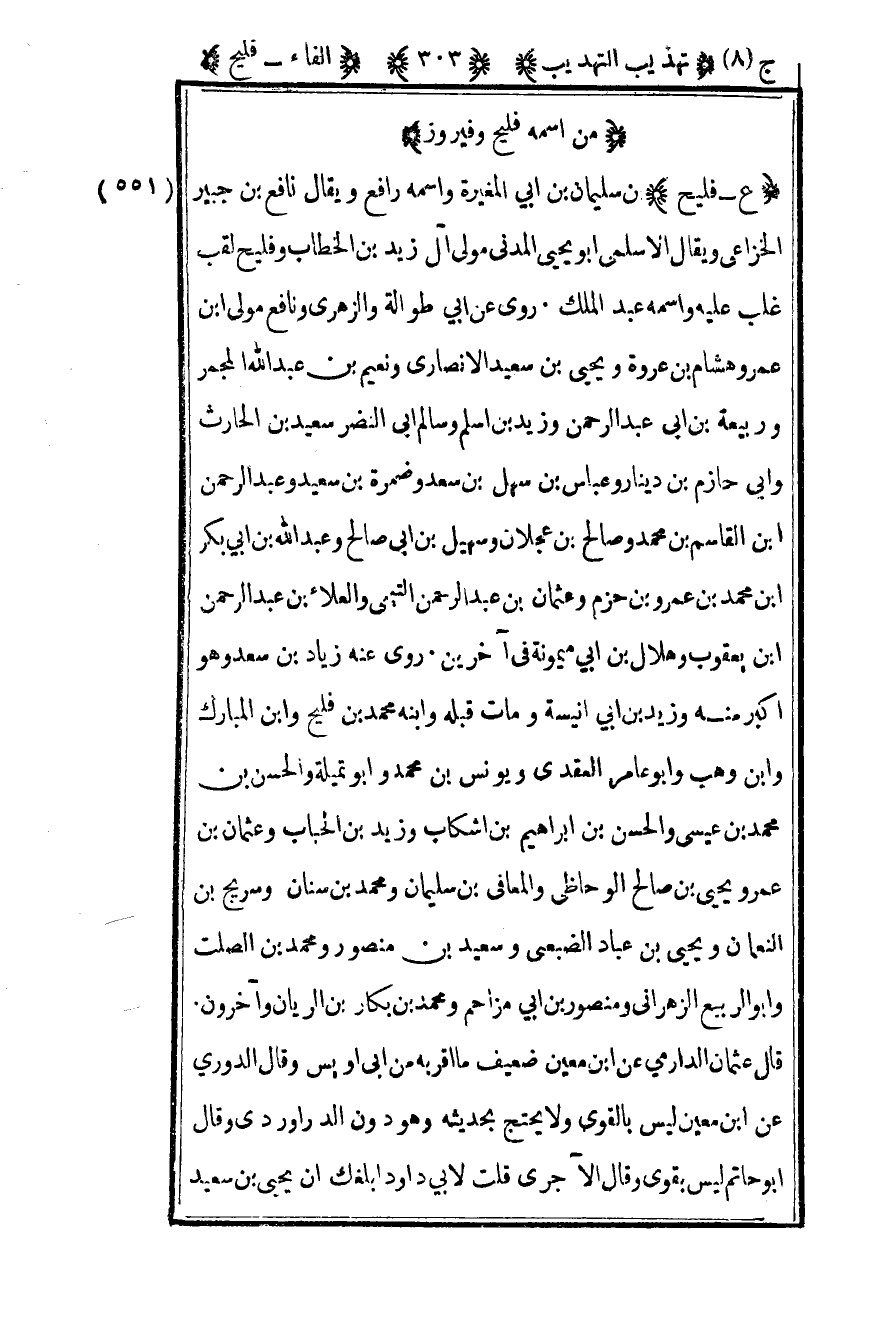 ج (٨) ﴿ تهذيب التهذيب ﴾ ﴿ ٣٠٣ ﴾ ﴿ الفاء ـ فليح ﴾
﴿ من اسمه فليح وفيروز ﴾
﴿ ع ـ فليح ﴾ بن سليمان بن ابي المغيرة واسمه رافع ويقال نافع بن جبير (٥٥١)
الخزاعى ويقال الاسلمى ابو يحيى المدنى مولى آل زيد بن الخطاب وفليح لقب
غلب عليه واسمه عبد الملك . روى عن ابي طوالة والزهرى ونافع مولى ابن
عمر وهشام بن عروة ويحيى بن سعيد الانصارى ونعيم بن عبد الله المجمر
وربيعة بن ابى عبد الرحمن وزيد بن اسلم وسالم ابى النضر سعيد بن الحارث
وابي حازم بن دينار وعباس بن سهل بن سعد وضمرة بن سعيد وعبد الرحمن
ابن القاسم بن محمد وصالح بن عجلان وسهيل بن ابى صالح وعبد الله بن ابي بكر
ابن محمد بن عمرو بن حزم وعثمان بن عبد الرحمن التيمى والعلاء بن عبد الرحمن
ابن يعقوب وهلال بن ابي ميمونة فى آخرين . روى عنه زياد بن سعد وهو
اكبر منه وزيد بن ابي انيسة ومات قبله وابنه محمد بن فليح وابن المبارك
وابن وهب وابو عامر العقدى ويونس بن محمد وابو تميلة والحسن بن
محمد بن عيسى والحسن بن ابراهيم بن اشكاب وزيد بن الحباب وعثمان بن
عمر ويحيى بن صالح الوحاظى والمعافى بن سليمان ومحمد بن سنان وسريج بن
النعمان ويحيى بن عباد الضبعى وسعيد بن منصور ومحمد بن الصلت
وابو الربيع الزهرانى ومنصور بن ابي مزاحم ومحمد بن بكار بن الريان وآخرون .
قال عثمان الدارمي عن ابن معين ضعيف ما اقربه من ابى اويس وقال الدوري
عن ابن معين ليس بالقوى ولا يحتج بحديثه وهو دون الدراوردى وقال
ابو حاتم ليس بقوى وقال الآجرى قلت لابي داود ابلغك ان يحيى بن سعيد